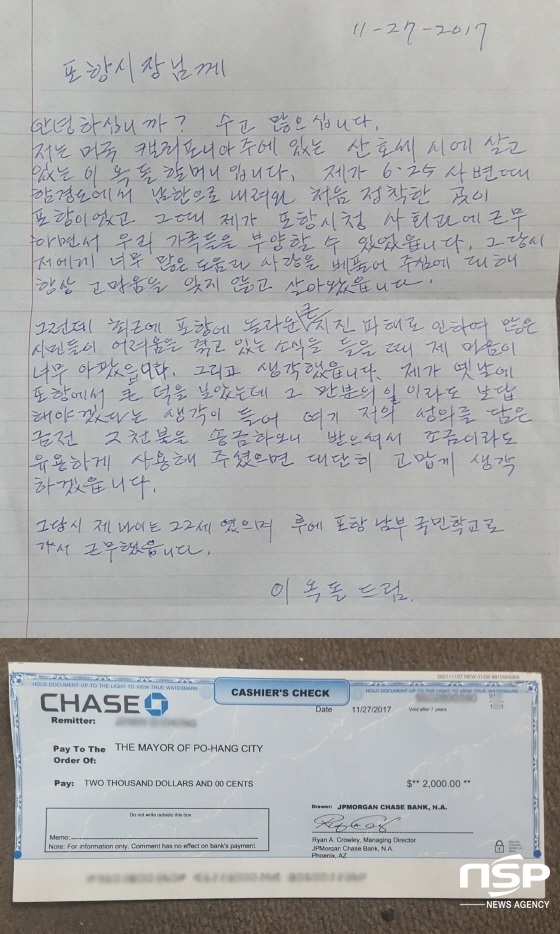 11-27-2017
포항시장님께
안녕하십니까? 수고 많으십니다.
저는 미국 캘리포니아주에 있는 산호세 시에 살고
있는 이옥돌할머니입니다. 제가 6·25 사변때
함경도에서 남한으로 내려와 처음 정착한 곳이
포항이었고 그때 제가 포항시청 사회과에 근무
하면서 우리 가족들을 부양할 수 있었읍니다. 그당시
저에게 너무 많은 도움과 사랑을 베풀어 주심에 대해
항상 고마움을 잊지 않고 살아왔읍니다.
그런데 최근에 포항에 놀라운 큰 지진 피해로 인하여 많은
시민들이 어려움을 겪고 있는 소식을 들을 때 제 마음이
너무 아팠읍니다. 그리고 생각했읍니다. 제가 옛날에
포항에서 큰 덕을 보았는데 그 만분의 일이라도 보답
해야겠다는 생각이 들어 여기 저의 성의를 담은
금전 2천불을 송금하오니 받으셔서 조금이라도
유용하게 사용해 주셨으면 대단히 고맙게 생각
하겠읍니다.
그당시 제 나이는 22세 였으며 후에 포항 남부 국민학교로
가서 근무했읍니다.
이 옥돌 드림.
HOLD DOCUMENT UP TO THE LIGHT TO VIEW TRUE WATERMARK
HOLD DOCUMENT UP TO THE LIGHT TO VIEW TRUE WATERMARK
CHASE
CASHIER'S CHECK
Remitter:
Date 11/27/2017
Void after 7 years
Pay To The
Order Of:
THE MAYOR OF PO-HANG CITY
Pay: TWO THOUSAND DOLLARS AND 00 CENTS
$** 2,000.00 **
Do not write outside this box
Memo:
Note: For information only. Comment has no effect on bank's payment.
Drawer: JPMORGAN CHASE BANK, N.A.
Ryan A. Crowley, Managing Director
JPMorgan Chase Bank, N.A.
Phoenix, AZ
NSP
NEWS AGENCY